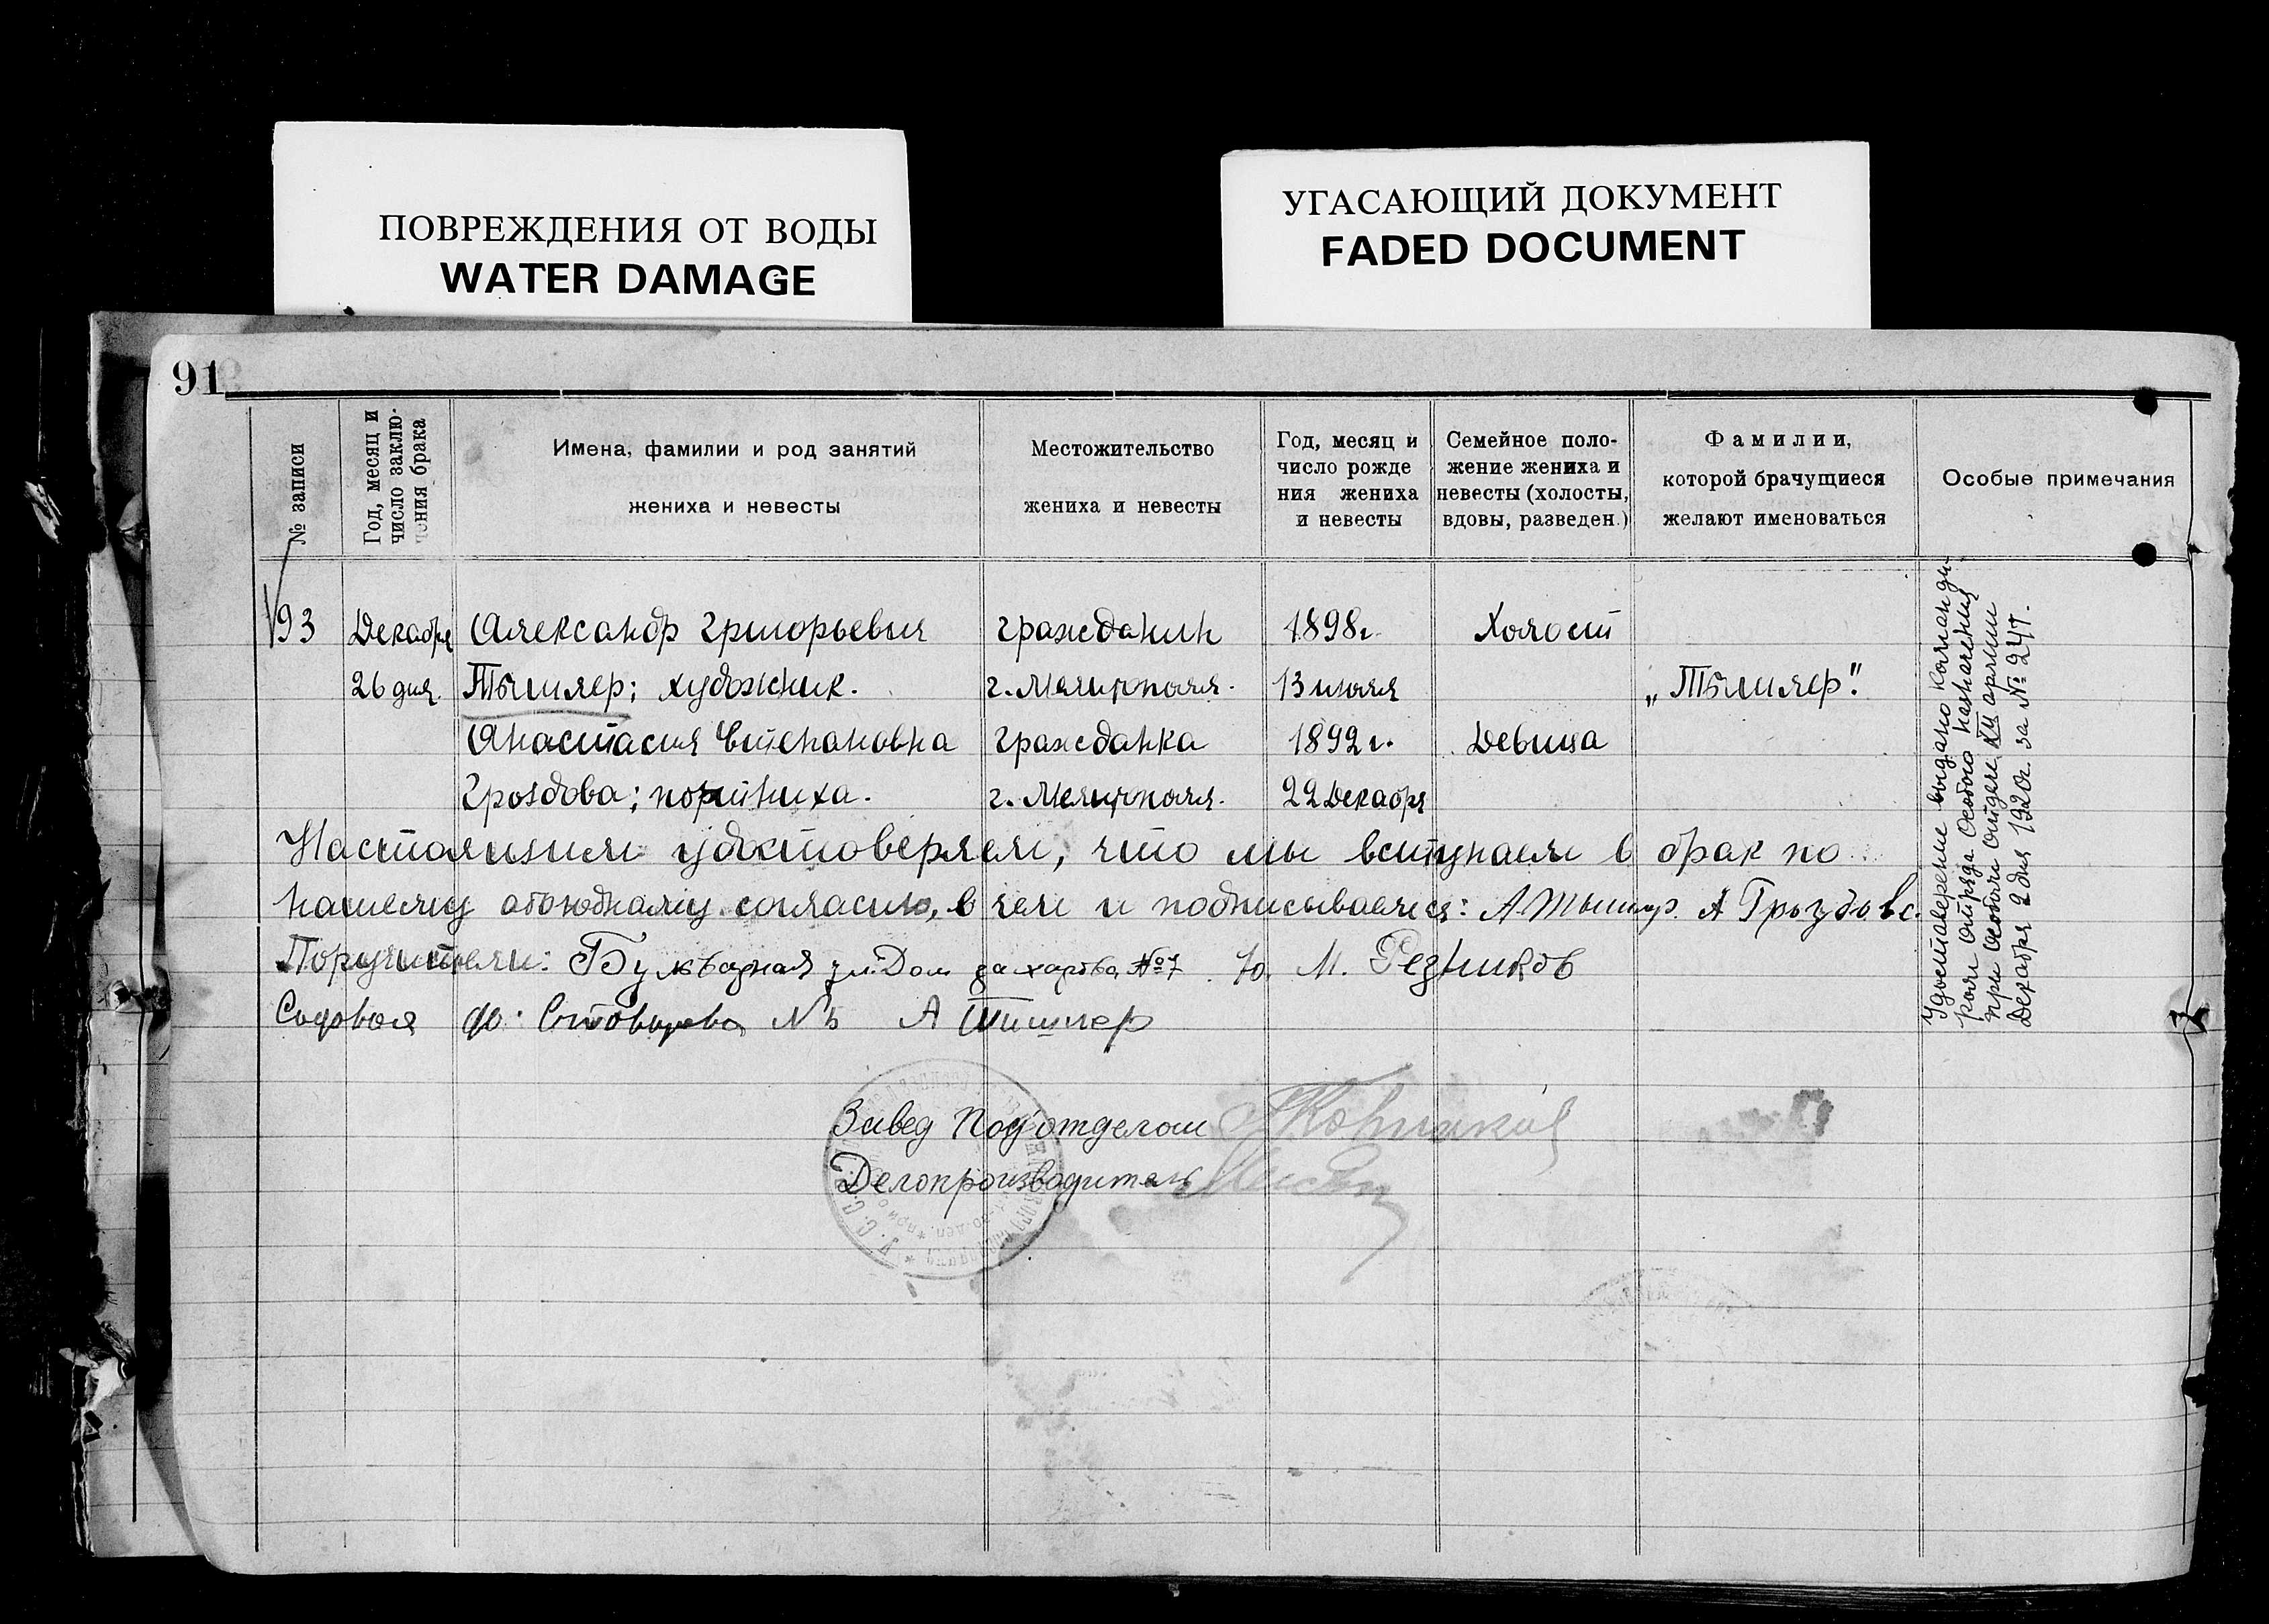 ПОВРЕЖДЕНИЯ ОТ ВОДЫ
WATER DAMAGE
УГАСАЮЩИЙ ДОКУМЕНТ
FADED DOCUMENT
91
№ записи
Год, месяц и
число заклю-
чения брака
Имена, фамилии и род занятий
жениха и невесты
Местожительство
жениха и невесты
Год, месяц и
число рожде
ния жениха
и невесты
Семейное поло-
жение жениха и
невесты (холосты,
вдовы, разведен.)
Фамилии,
которой брачущиеся
желают именоваться
Особые примечания
93 Декабря Александр Григорьевич гражданин 1898г. Холост
26 дня. Тышлер; художник. г. Мелитополя. 13 июля „Тышлер".
Анастасия Степановна гражданка 1892г. Девица
Гроздова; портниха. г. Мелитополя. 22 Декабря
Настоящим удостоверяем, что мы вступаем в брак по
нашему обоюдному согласию, в чем и подписываемся: А Тышлер. А Гроздова.
Поручители: Бульварная ул. Дом Захарова №7 Ю. М. Резников
Садовая № 5 А Тишлер
Завед Под'отделом
Делопроизводитель
Удостоверение выдано команди-
ром отряда Особого назначения
при Особом отделе XIII армии
Декабря 2 дня 1920г. за № 247.